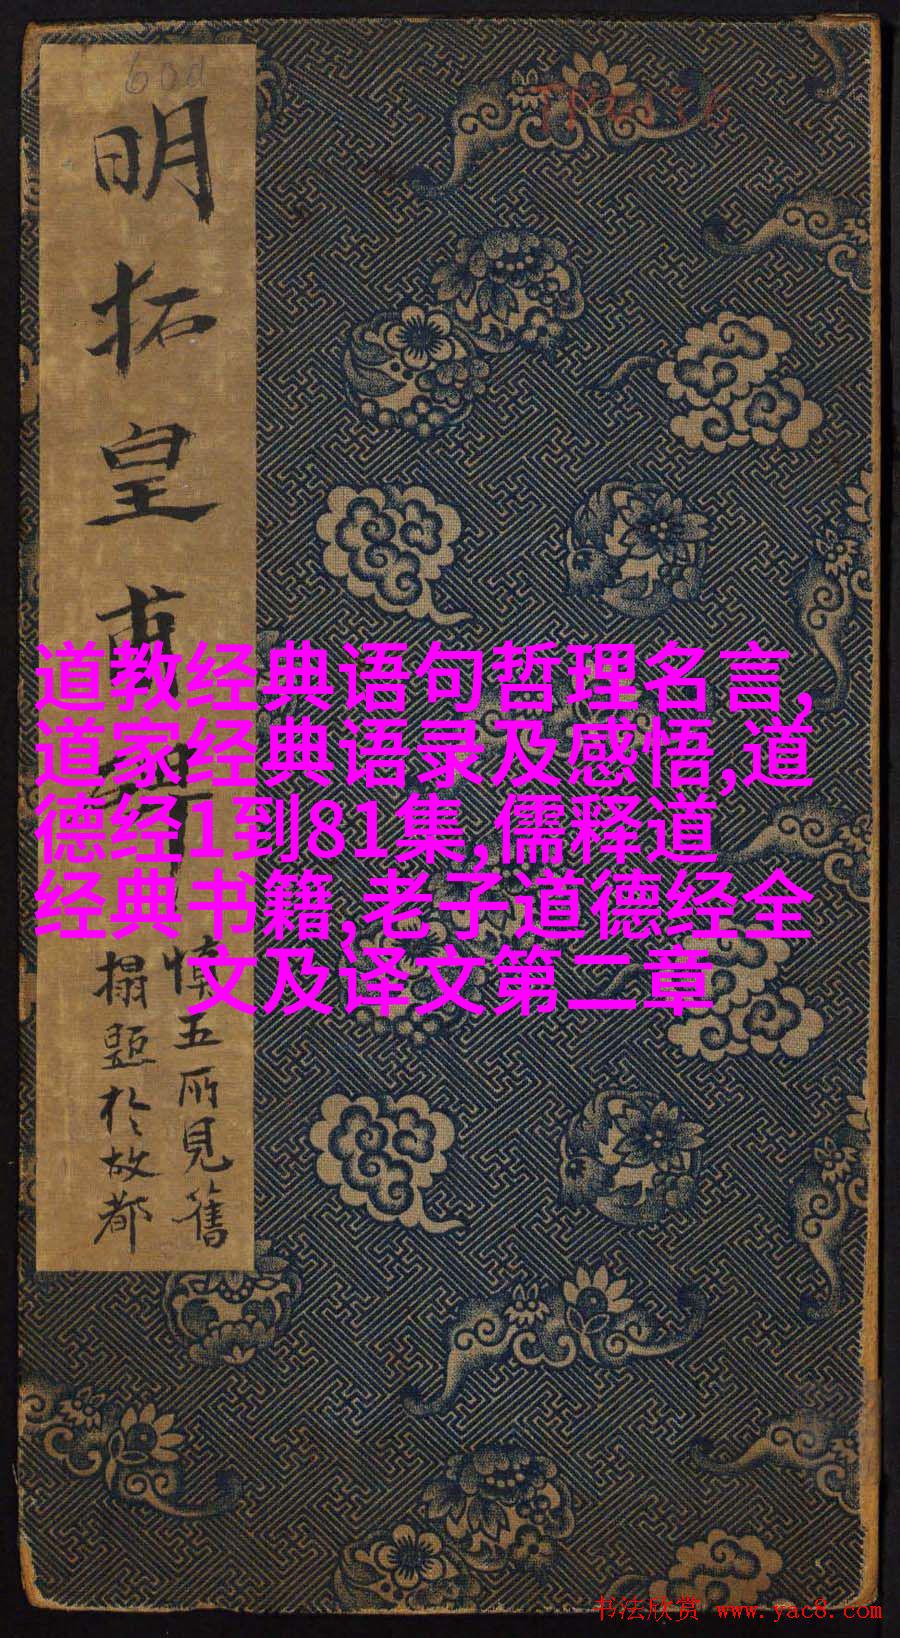 600
明拓皇甫
悼五所見舊
搨題於故都
道教经典语句哲理名言,
道家经典语录及感悟,道
德经1到81集,儒释道
经典书籍,老子道德经全
文及译文第二章
书法欣赏 www.yac8.com